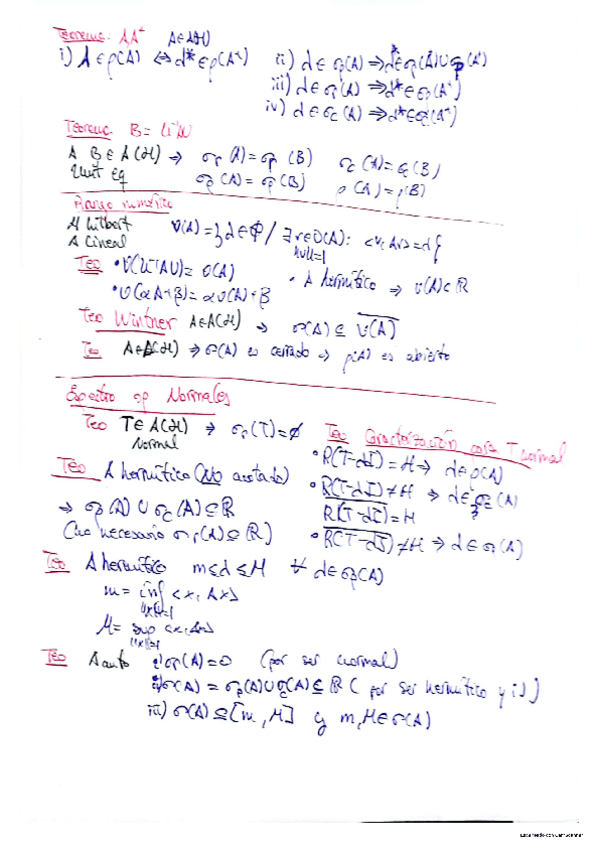 Teorema: A, A⁺ A∈A(H)
i) λ∈ρ(A) ⇔ λ*∈ρ(A⁺) ii) λ∈σr(A) ⇒ λ*∈σp(A⁺)
iii) λ∈σp(A) ⇒ λ*∈σp(A⁺)∪σr(A⁺)
iv) λ∈σc(A) ⇒ λ*∈σc(A⁺)
Teorema B = U⁻¹AU
A, B∈A(H) ⇒ σr(A)=σr(B) σc(A)=σc(B)
Unit eq σp(A)=σp(B) ρ(A)=ρ(B)
Rango numérico
H Hilbert
A lineal
V(A)={λ∈ℂ / ∃v∈D(A): <v,Av>=λ}
||v||=1
Teo • V(U⁻¹AU)= V(A) • A hermítico ⇒ V(A)⊂ℝ
• V(αA+β)= αV(A)+β
Teo Wintner A∈A(H) ⇒ σ(A) ⊆ V(A)
Teo A∈A(H) ⇒ σ(A) es cerrado ⇒ ρ(A) es abierto
Espectro op Normales
Teo T∈A(H) ⇒ σr(T)=∅
Normal
Teo Caracterización para T normal
• R(T-λI)=H ⇒ λ∈ρ(A)
Teo A hermítico (No acotado)
• R(T-λI)≠H ⇒ λ∈σc(A)
R(T-λI)=H
⇒ σp(A) ∪ σc(A)⊆ℝ
• R(T-λI)≠H ⇒ λ∈σp(A)
(no necesario σr(A)⊆ℝ)
Teo A hermítico m≤λ≤M ∀ λ∈σp(A)
m= inf <x,Ax>
||x||=1
M= sup <x,Ax>
||x||=1
Teo A auto i) σr(A)=∅ (por ser normal)
ii) σ(A) = σp(A)∪σc(A)⊆ℝ (por ser hermítico y i))
iii) σ(A)⊆[m,M] y m,M∈σ(A)
Escaneado con CamScanner